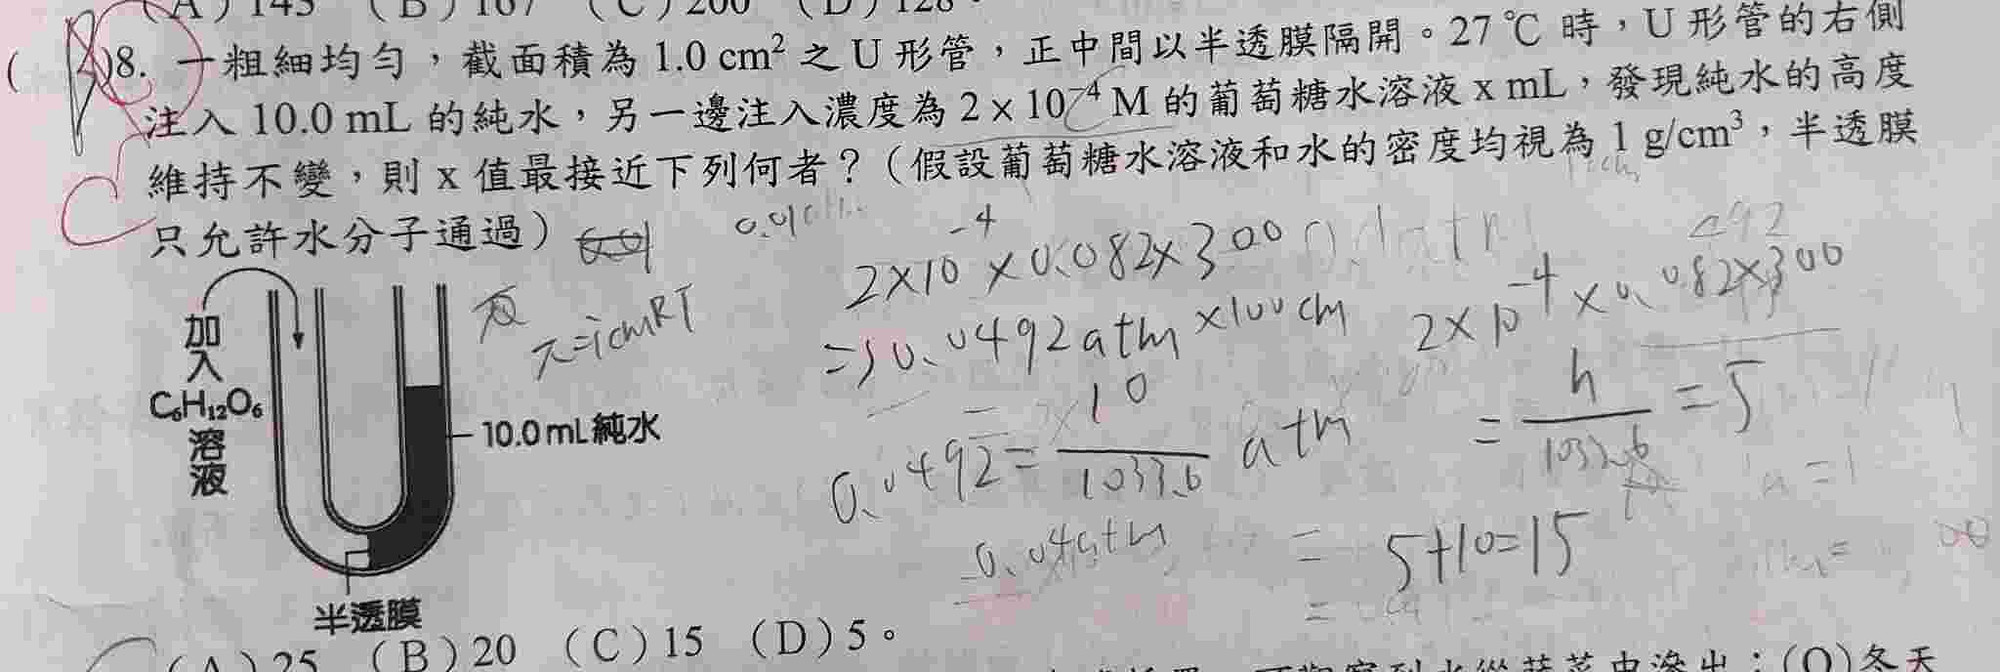 (A) 143 (B) 167 (C) 200 (D) 128。
( )8. 一粗細均勻，截面積為 1.0 cm² 之 U 形管，正中間以半透膜隔開。27 ℃ 時，U 形管的右側
注入 10.0 mL 的純水，另一邊注入濃度為 2 × 10⁻⁴ M 的葡萄糖水溶液 x mL，發現純水的高度
維持不變，則 x 值最接近下列何者？（假設葡萄糖水溶液和水的密度均視為 1 g/cm³，半透膜
只允許水分子通過）
C
2×10⁻⁴×0.082×300
π=icmRT
=0.0492atm×100cm
2×10⁻⁴×0.082×300
加入
C₆H₁₂O₆
溶液
10.0 mL純水
0.0492=10/1033.6 atm
=h/1033.6=5
0.04atm
=5+10=15
半透膜
(A) 25 (B) 20 (C) 15 (D) 5。